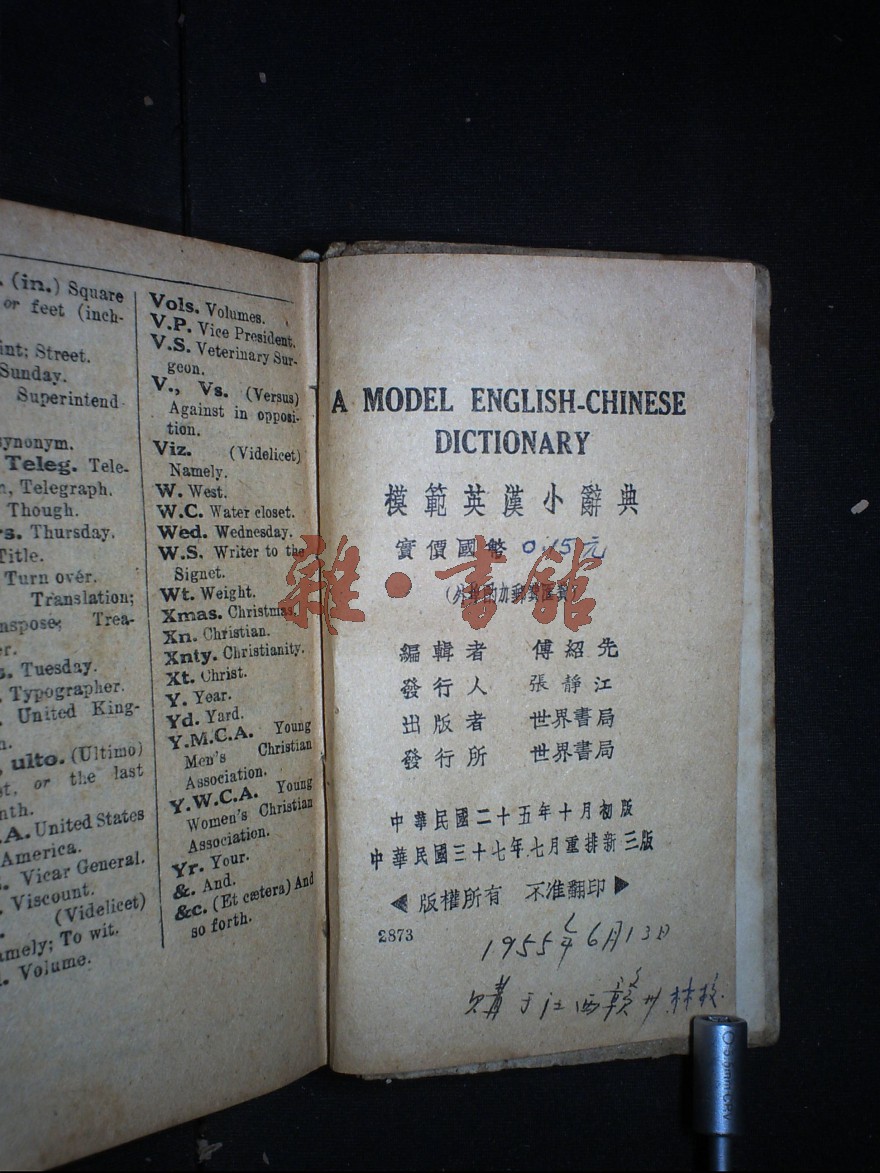 (in.) Square
or feet (inch-
Street.
Sunday.
Superintend
synonym.
Teleg. Tele-
Telegraph.
Though.
Thursday.
Title.
Turn over.
Translation;
Trea-
Tuesday.
Typographer.
United King-
ulto. (Ultimo)
or the last
United States
America.
Vicar General.
Viscount.
(Videlicet)
To wit.
Volume.
Vols. Volumes.
V.P. Vice President.
V.S. Veterinary Sur-
geon.
V., Vs. (Versus)
Against in opposi-
tion.
Viz. (Videlicet)
Namely.
W. West.
W.C. Water closet.
Wed. Wednesday.
W.S. Writer to the
Signet.
Wt. Weight.
Xmas. Christmas.
Xn. Christian.
Xnty. Christianity.
Xt. Christ.
Y. Year.
Yd. Yard.
Y.M.C.A. Young
Men's Christian
Association.
Y.W.C.A. Young
Women's Christian
Association.
Yr. Your.
&. And.
&c. (Et cætera) And
so forth.
A MODEL ENGLISH-CHINESE
DICTIONARY
模範英漢小辭典
實價國幣 0.15元
雜·書館
編輯者 傅紹先
發行人 張靜江
出版者 世界書局
發行所 世界書局
中華民國二十五年十月初版
中華民國三十七年七月重排新三版
◀ 版權所有 不准翻印 ▶
2873
1955年6月13日
購于江西贛州林校